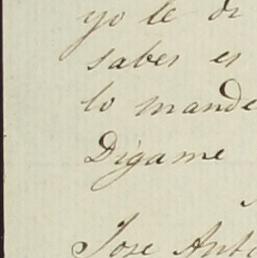 yo le di
saber es
lo mande
Digame
Jose Anto